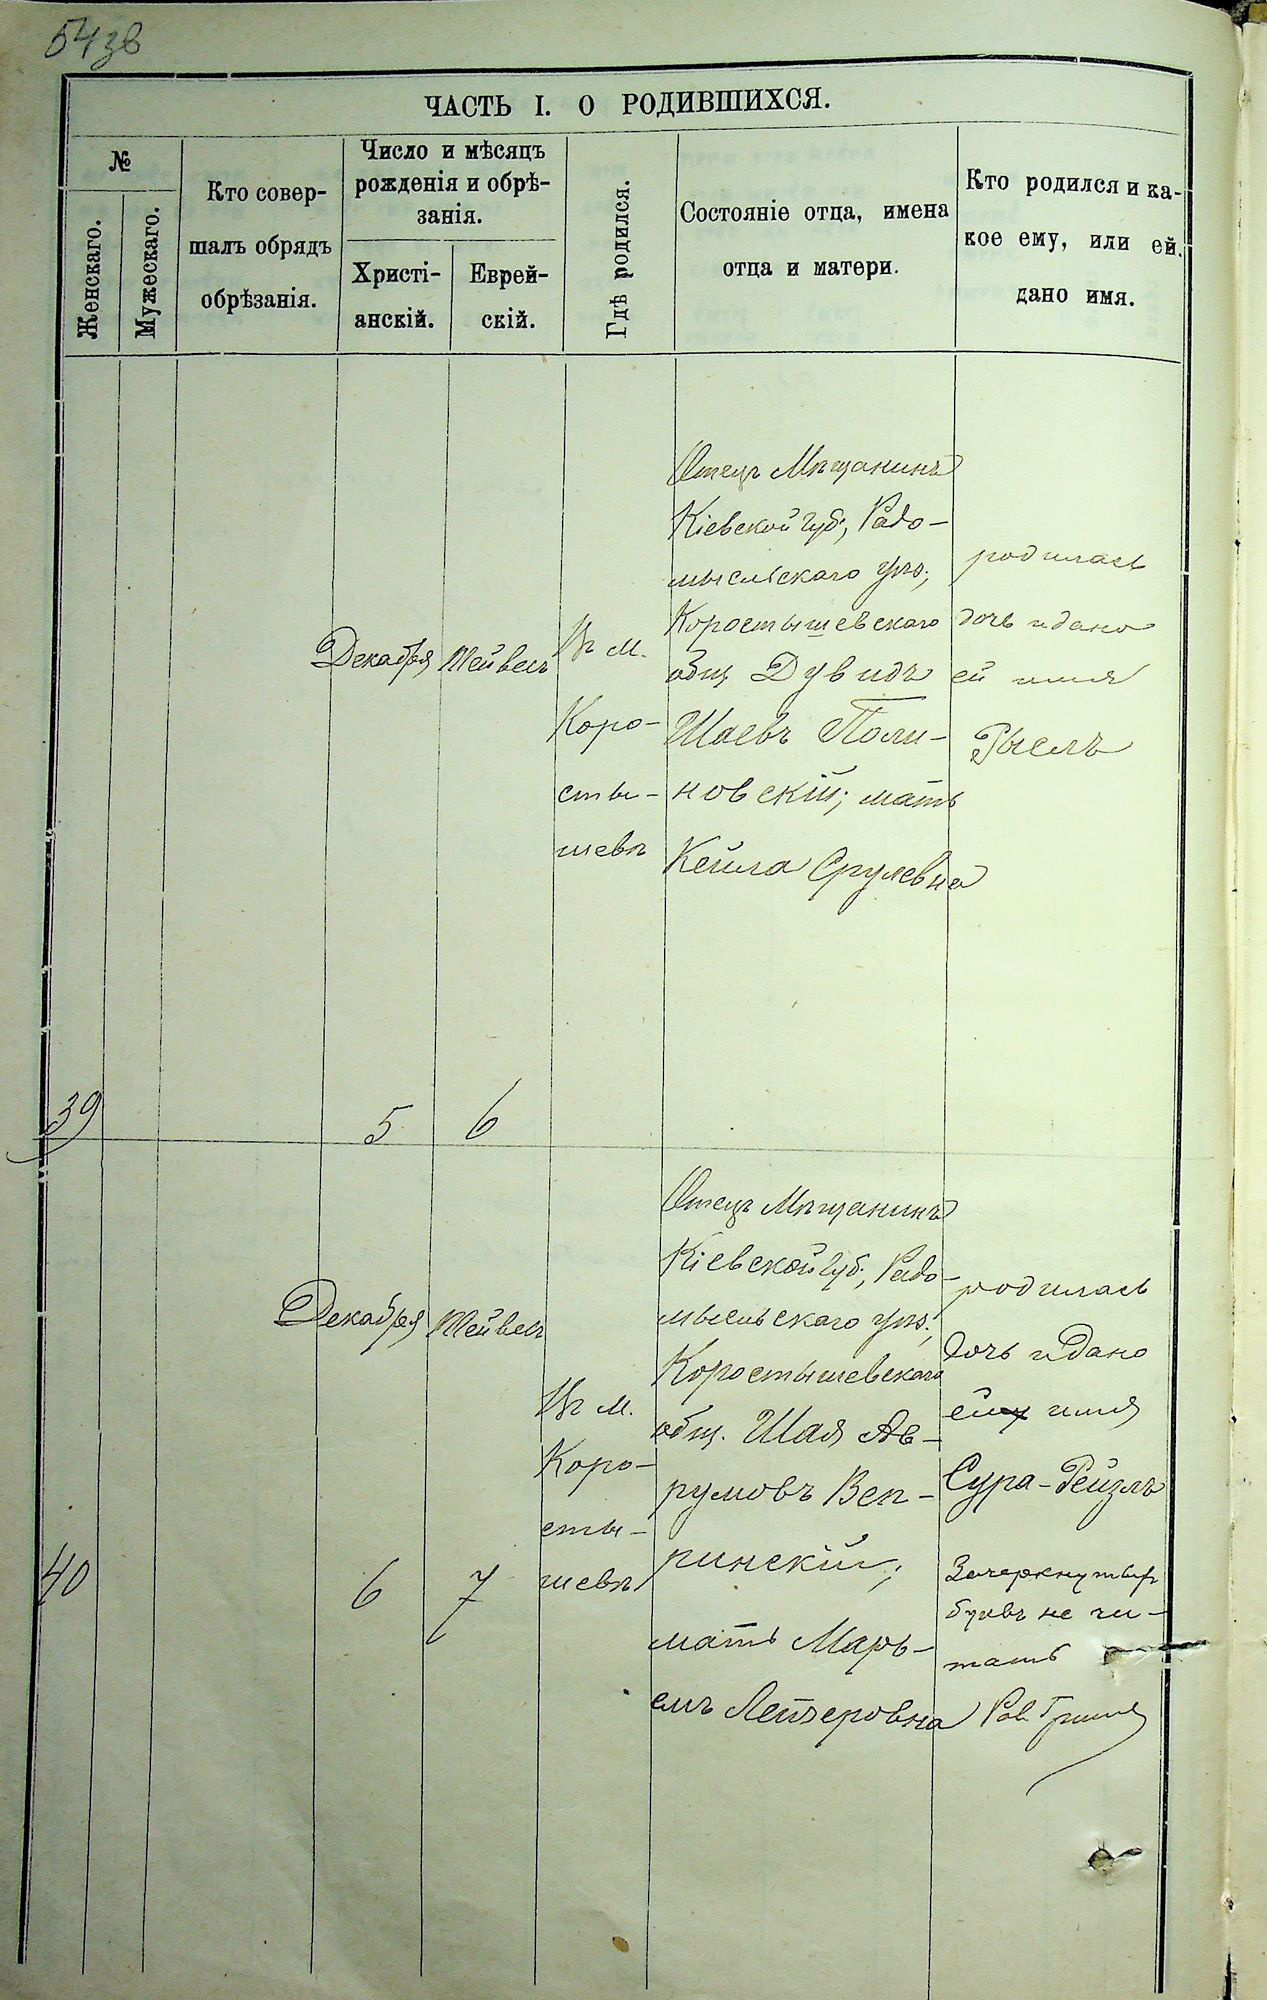 54 зв
ЧАСТЬ I. О РОДИВШИХСЯ.
№
Женскаго.
Мужескаго.
Кто совер-
шалъ обрядъ
обрѣзанія.
Число и мѣсяцъ
рожденія и обрѣ-
занія.
Христі-
анскій.
Еврей-
скій.
Гдѣ родился.
Состояніе отца, имена
отца и матери.
Кто родился и ка-
кое ему, или ей
дано имя.
39
Декабря
5
Тейвесъ
6
Въ м.
Коро-
сты-
шевѣ
Отецъ Мѣщанинъ
Кіевской губ., Радо-
мысльскаго уѣз.,
Коростышевскаго
общ Дувидъ
Шаевъ Поли-
новскій; мать
Кейла Срулевна
родилась
дочь и дано
ей имя
Рыслъ
40
Декабря
6
Тейвесъ
7
Въ м.
Коро-
сты-
шевѣ
Отецъ Мѣщанинъ
Кіевской губ., Радо-
мысльскаго уѣз.,
Коростышевскаго
общ. Шая Ав-
румовъ Веп-
ринскій;
мать Марь-
емъ Лейзеровна
родилась
дочь и дано
ей имя
Сура-Рейзлъ
Зачеркнутыхъ
буквъ не чи-
тать
Рав.